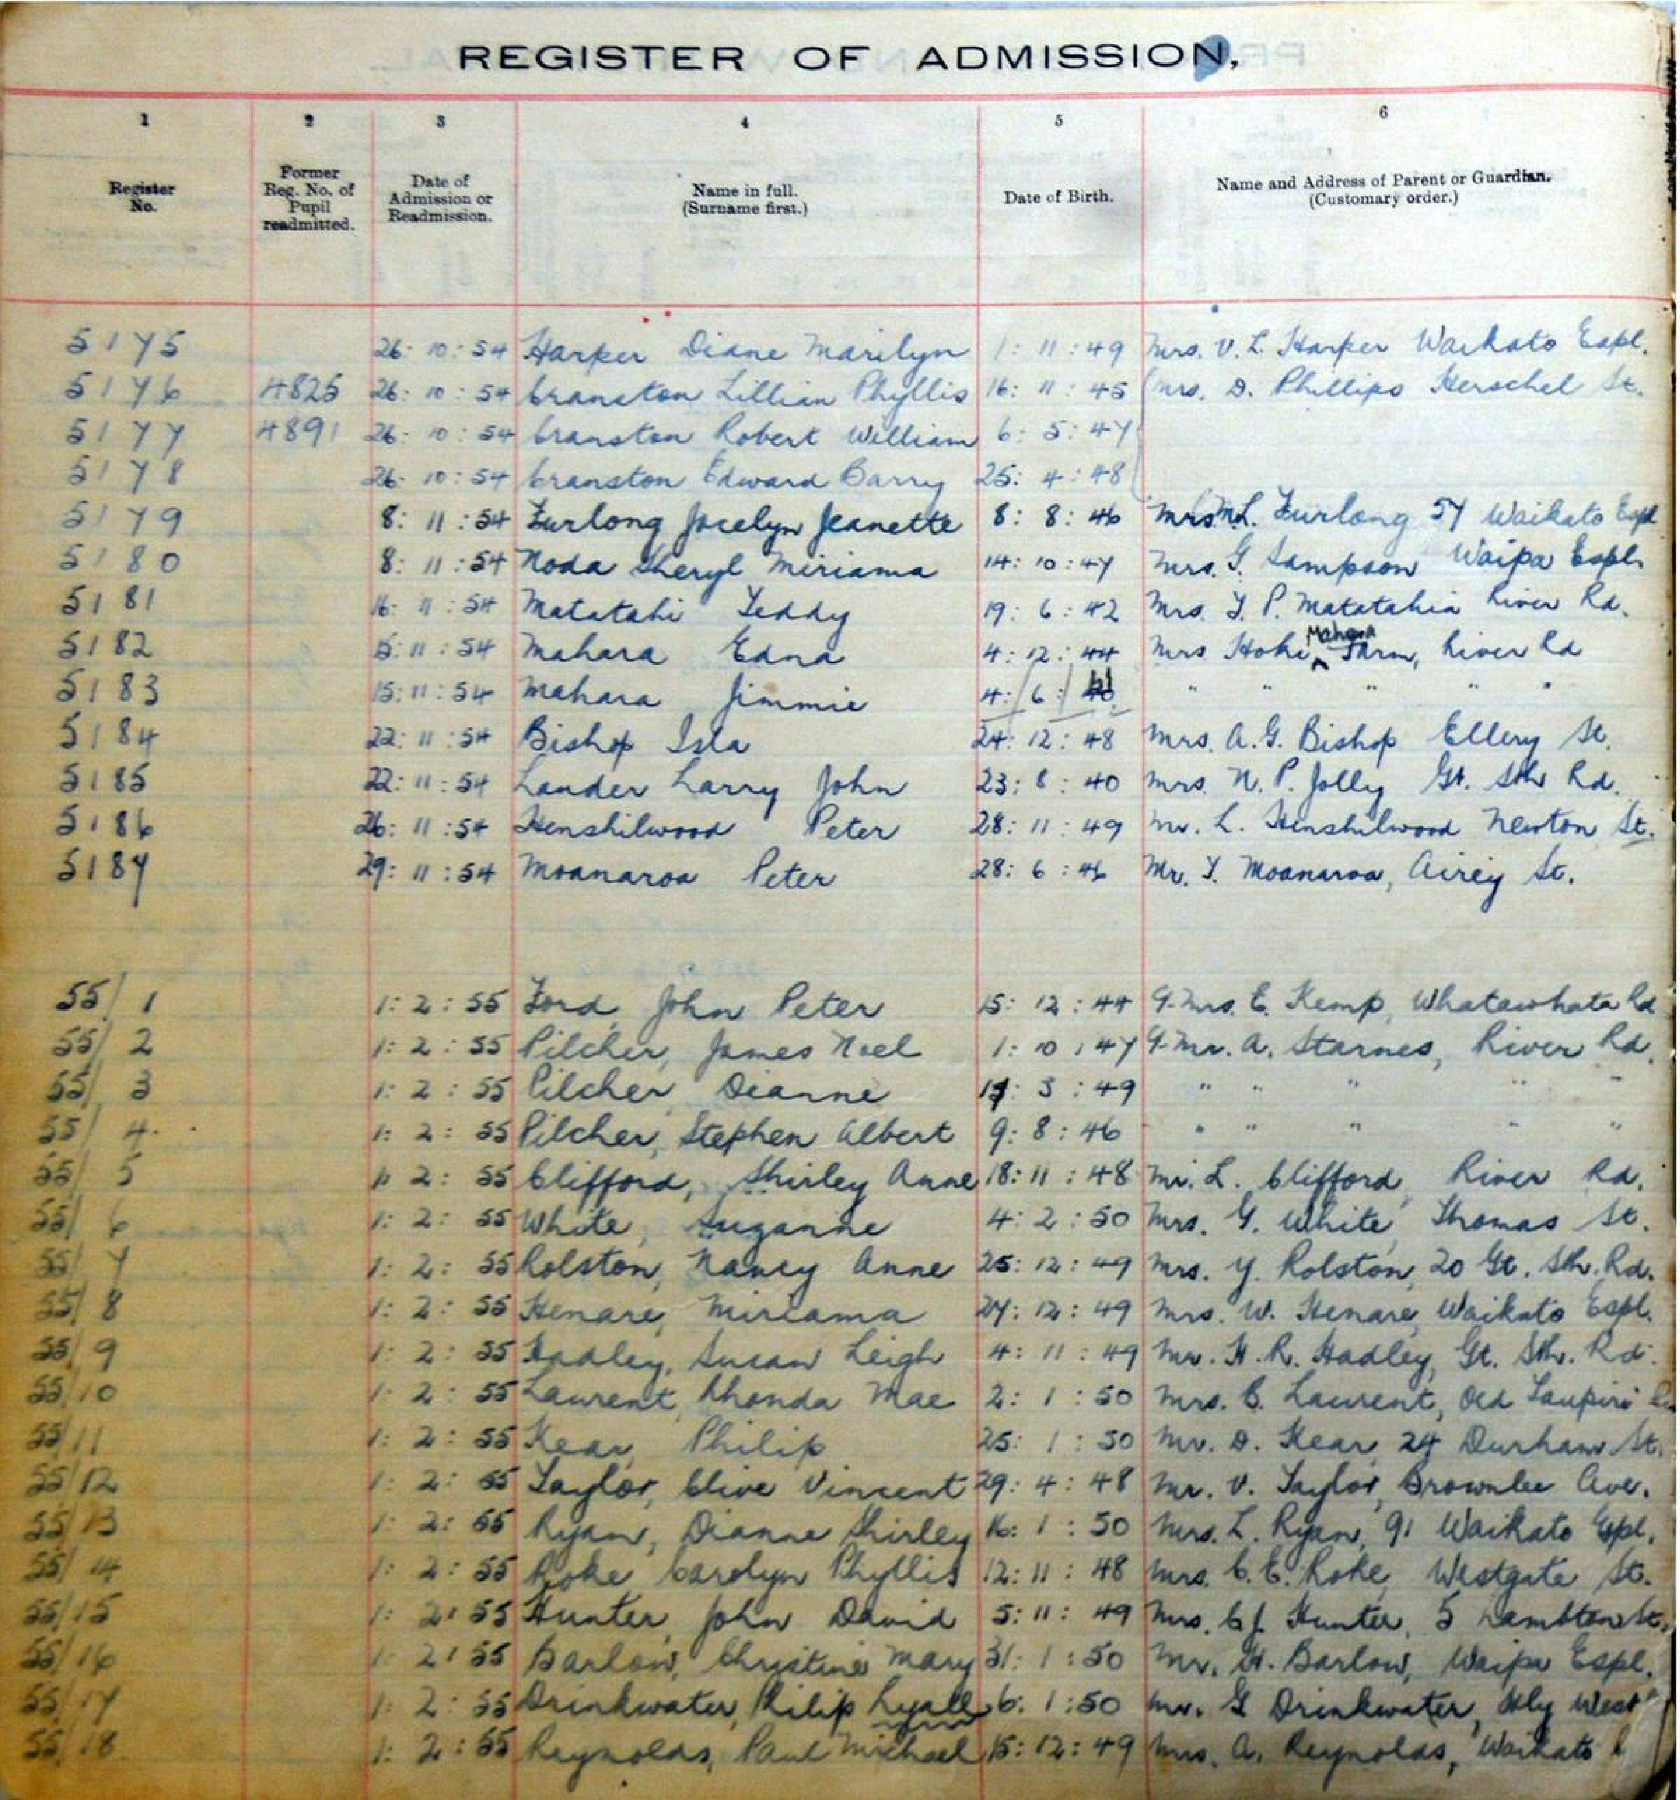 REGISTER OF ADMISSION.
1 2 3 4 5 6
Register No. Former Reg. No. of Pupil readmitted. Date of Admission or Readmission. Name in full. (Surname first.) Date of Birth. Name and Address of Parent or Guardian. (Customary order.)
5175 26: 10: 54 Harper Diane Marilyn 1: 11: 49 Mrs. V. L. Harper Waikato Espl.
5176 4825 26: 10: 54 Cranston Lillian Phyllis 16: 11: 45 Mrs. D. Phillips Herschel St.
5177 4891 26: 10: 54 Cranston Robert William 6: 5: 47
5178 26: 10: 54 Cranston Edward Barry 25: 4: 48
5179 8: 11: 54 Furlong Jocelyn Jeanette 8: 8: 46 Mrs M.L. Furlong 57 Waikato Espl
5180 8: 11: 54 Noda Sheryl Miriama 14: 10: 47 Mrs. G. Sampson Waipa Espl.
5181 16: 11: 54 Matatahi Teddy 19: 6: 42 Mrs. T. P. Matatahia River Rd.
5182 15: 11: 54 Mahara Edna 4: 12: 44 Mrs Hoki Mahara Farm, River Rd
5183 15: 11: 54 Mahara Jimmie 4: 6: 41 " " " " "
5184 22: 11: 54 Bishop Isla 24: 12: 48 Mrs. A. G. Bishop Ellery St.
5185 22: 11: 54 Lander Larry John 23: 8: 40 Mrs. N. P. Jolly Gt. Sth Rd.
5186 26: 11: 54 Henshilwood Peter 28: 11: 49 Mr. L. Henshilwood Newton St.
5187 29: 11: 54 Moanaroa Peter 28: 6: 46 Mr. T. Moanaroa, Airey St.
55/1 1: 2: 55 Ford, John Peter 15: 12: 44 G. Mrs. E. Kemp, Whatawhata Rd
55/2 1: 2: 55 Pilcher, James Noel 1: 10: 47 G. Mr. A. Starnes, River Rd.
55/3 1: 2: 55 Pilcher, Dianne 3: 49 " " " " "
55/4. 1: 2: 55 Pilcher, Stephen Albert 9: 8: 46 " " " " "
55/5 1: 2: 55 Clifford, Shirley Anne 18: 11: 48 Mr. L. Clifford, River Rd.
55/6 1: 2: 55 White, Suzanne 4: 2: 50 Mrs. G. White, Thomas St.
55/7 1: 2: 55 Rolston, Nancy Anne 25: 12: 49 Mrs. Y. Rolston, 20 Gt. Sth. Rd.
55/8 1: 2: 55 Henare, Miriama 27: 12: 49 Mrs. W. Henare, Waikato Espl.
55/9 1: 2: 55 Hadley, Susan Leigh 4: 11: 49 Mr. H. R. Hadley, Gt. Sth. Rd.
55/10 1: 2: 55 Laurent, Rhonda Mae 2: 1: 50 Mrs. C. Laurent, Old Taupiri Rd
55/11 1: 2: 55 Kear, Philip 25: 1: 50 Mr. D. Kear, 24 Durham St.
55/12 1: 2: 55 Taylor, Clive Vincent 29: 4: 48 Mr. V. Taylor, Brownlee Ave.
55/13 1: 2: 55 Ryan, Dianne Shirley 16: 1: 50 Mrs. L. Ryan, 91 Waikato Espl.
55/14 1: 2: 55 Roke Carolyn Phyllis 12: 11: 48 Mrs. C. E. Roke, Westgate St.
55/15 1: 2: 55 Hunter, John David 5: 11: 49 Mrs. C J Hunter, 5 Lambton St.
55/16 1: 2: 55 Barlow, Christine Mary 31: 1: 50 Mr. H. Barlow, Waipa Espl.
55/17 1: 2: 55 Drinkwater, Philip Lyall 6: 1: 50 Mr. G Drinkwater, Hly West
55/18 1: 2: 55 Reynolds, Paul Michael 15: 12: 49 Mrs. A. Reynolds, Waikato